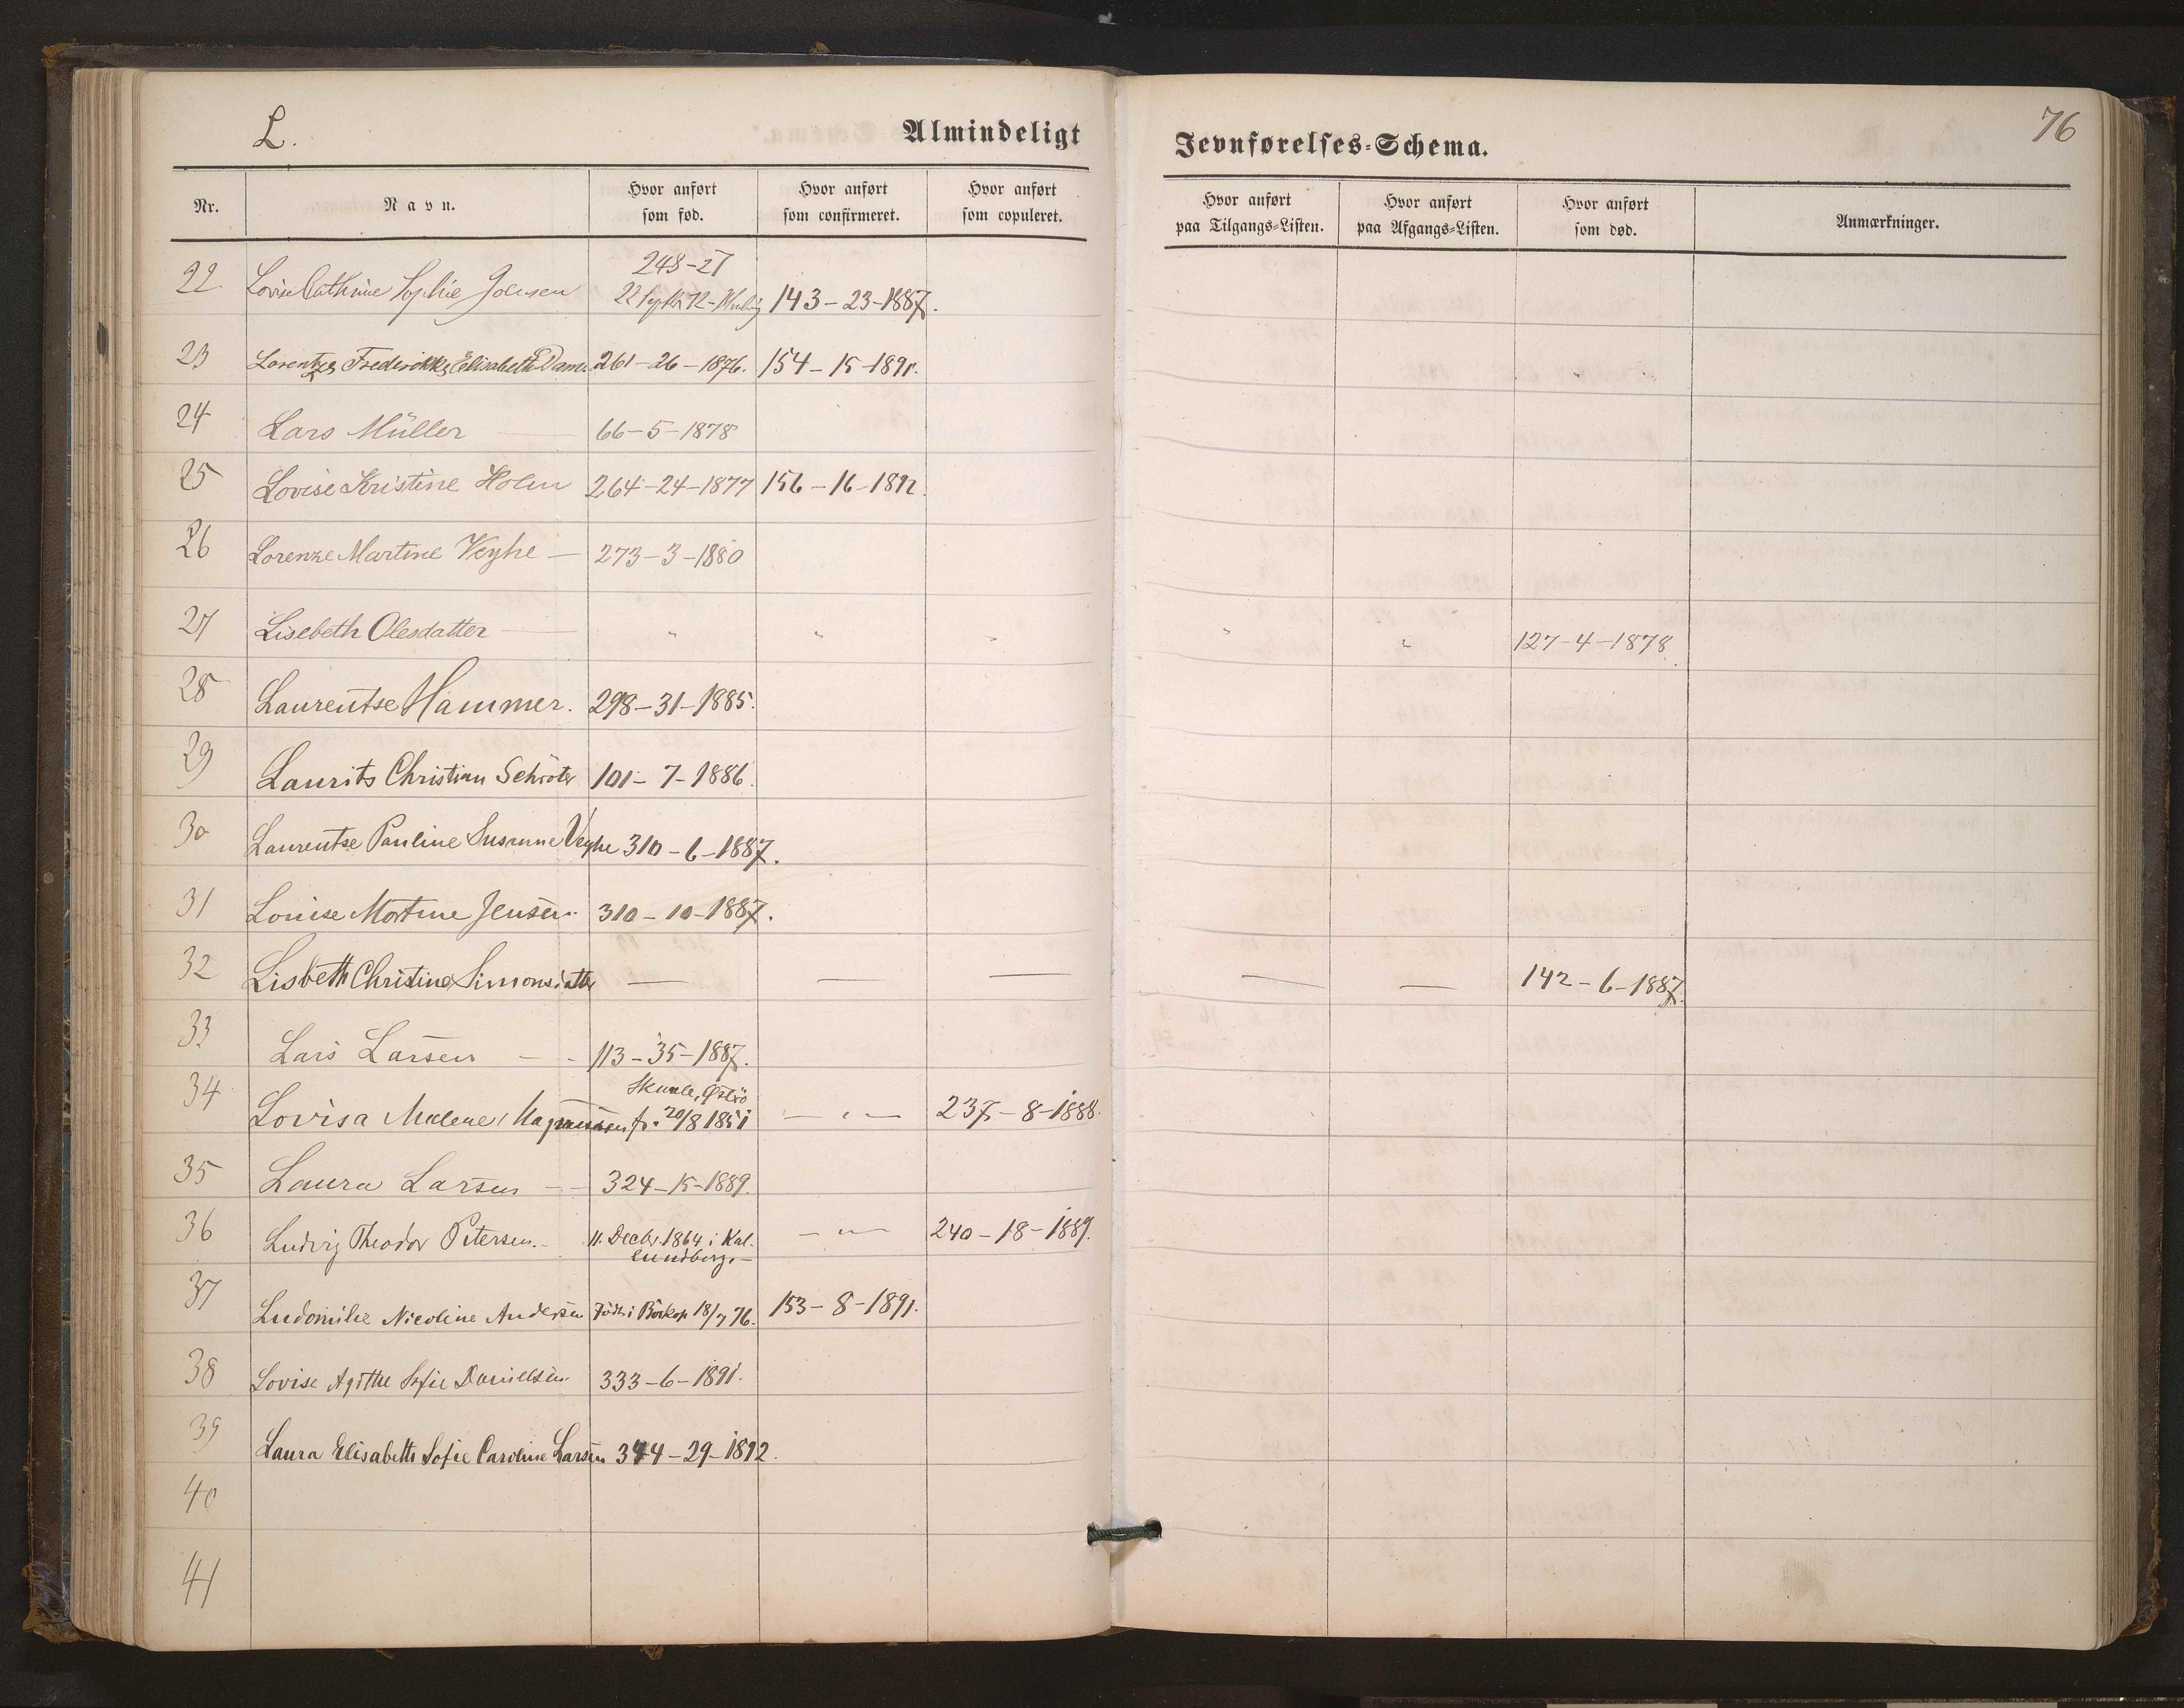 L.
Almindeligt Jevnførelses-Schema.
76
Nr. Navn. Hvor anført som fød. Hvor anført som confirmeret. Hvor anført som copuleret. Hvor anført paa Tilgangs-Listen. Hvor anført paa Afgangs-Listen. Hvor anført som død. Anmærkninger.
248-27
22 Lovise Cathrine Sophie Joensen 22 Septbr 72 143-23-1887.
23 Lorentze Frederikke Elisabeth Dam 261-26-1876. 154-15-1891.
24 Lars Müller — 66-5-1878
25 Lovise Kristine Holm 264-24-1877 156-16-1892.
26 Lorenze Martine Veyhe — 273-3-1880
27 Lisebeth Olesdatter — " " " " " 127-4-1878.
28 Laurentse Hammer. 298-31-1885.
29 Laurits Christian Schröter 101-7-1886.
30 Laurentse Pauline Susanne Veyhe 310-6-1887.
31 Louise Mortine Jensen. 310-10-1887.
32 Lisbeth Christine Simonsdatter — — — — — 142-6-1887.
33 Lars Larsen — - 113-35-1887.
Skaale, Øströ
34 Lovisa Malene Magnussen f. 20/8 1851 — " — 237-8-1888.
35 Laura Larsen — 324-15-1889.
36 Ludvig Theodor Petersen.- 11. Decbr. 1864 i Kal- — " — 240-18-1889.
lundborg.—
37 Ludomilie Nicoline Andersen Född i 18/7 76. 153-8-1891.
38 Lovise Agathe Sofie Danielsen. 333-6-1891.
39 Laura Elisabeth Sofie Caroline Larsen 344-29-1892.
40
41